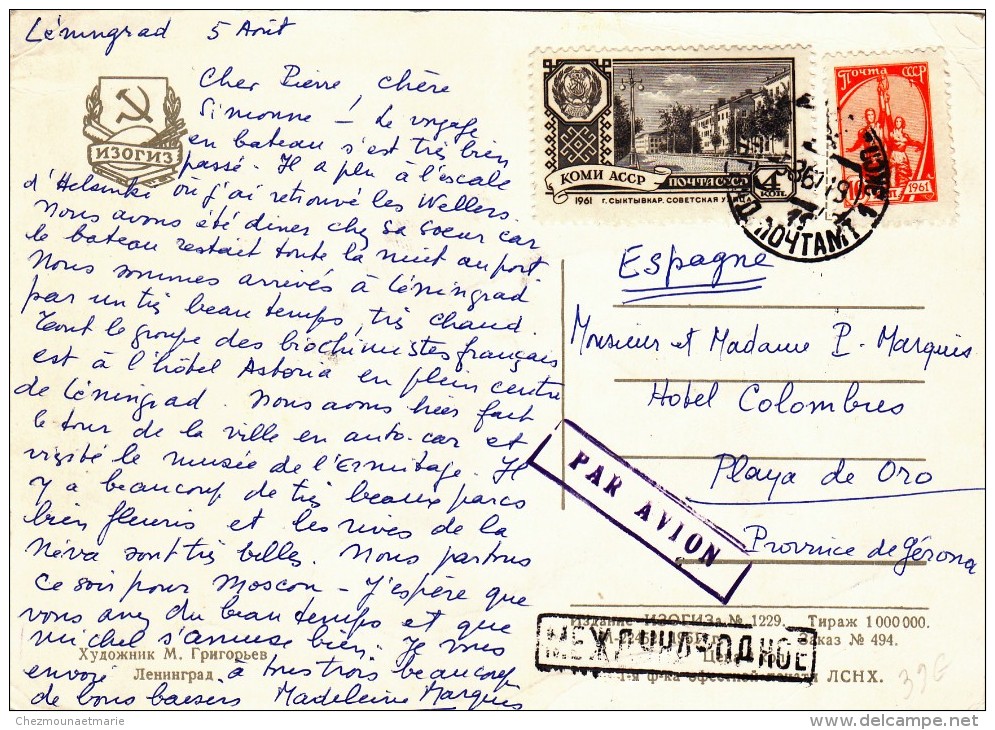 Léningrad 5 Août
Cher Pierre, chère
Simonne – Le voyage
en bateau s'est très bien
passé. Il a plu à l'escale
d'Helsinki où j'ai retrouvé les Wellers.
Nous avons été diner chez sa soeur car
le bateau restait toute la nuit au port
Nous sommes arrivés à Léningrad
par un très beau temps, très chaud.
Tout le groupe des biochimistes français
est à l'hôtel Astoria en plein centre
de Léningrad. Nous avons hier fait
le tour de la ville en auto-car et
visité le musée de l'Ermitage. Il
y a beaucoup de très beaux parcs
bien fleuris et les rives de la
Néva sont très belles. Nous partons
ce soir pour Moscou – J'espère que
vous avez du beau temps et que
Michel s'amuse bien. Je vous
envoie à tous trois beaucoup
de bons baisers Madeleine Marquis
ИЗОГИЗ
Художник М. Григорьев
Ленинград
КОМИ АССР
ПОЧТА СССР
4 КОП.
1961 г. СЫКТЫВКАР. СОВЕТСКАЯ УЛИЦА
Почта СССР
1961
ПОЧТАМТ
Espagne
Monsieur et Madame P. Marquis
Hotel Colombres
Playa de Oro
Province de Gérona
PAR AVION
Издание ИЗОГИЗа № 1229. Тираж 1 000 000.
Заказ № 494.
МЕЖДУНАРОДНОЕ
1-я ф-ка офсетной печати ЛСНХ.
Chezmounaetmarie
www.delcampe.net